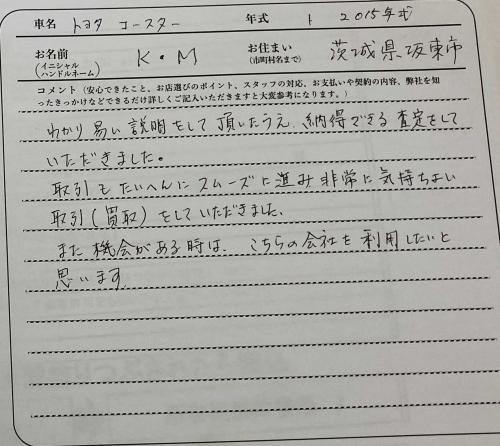 車名 トヨタ コースター 年式 2015年式
お名前 (イニシャル ハンドルネーム) K・M お住まい (市町村名まで) 茨城県坂東市
コメント(安心できたこと、お店選びのポイント、スタッフの対応、お支払いや契約の内容、弊社を知
ったきっかけなどできるだけ詳しくご記入いただきますと大変参考になります。)
わかり易い説明をして頂いたうえ、納得できる査定をして
いただきました。
取引もたいへんにスムーズに進み非常に気持ちよい
取引(買取)をしていただきました。
また機会がある時は、こちらの会社を利用したいと
思います